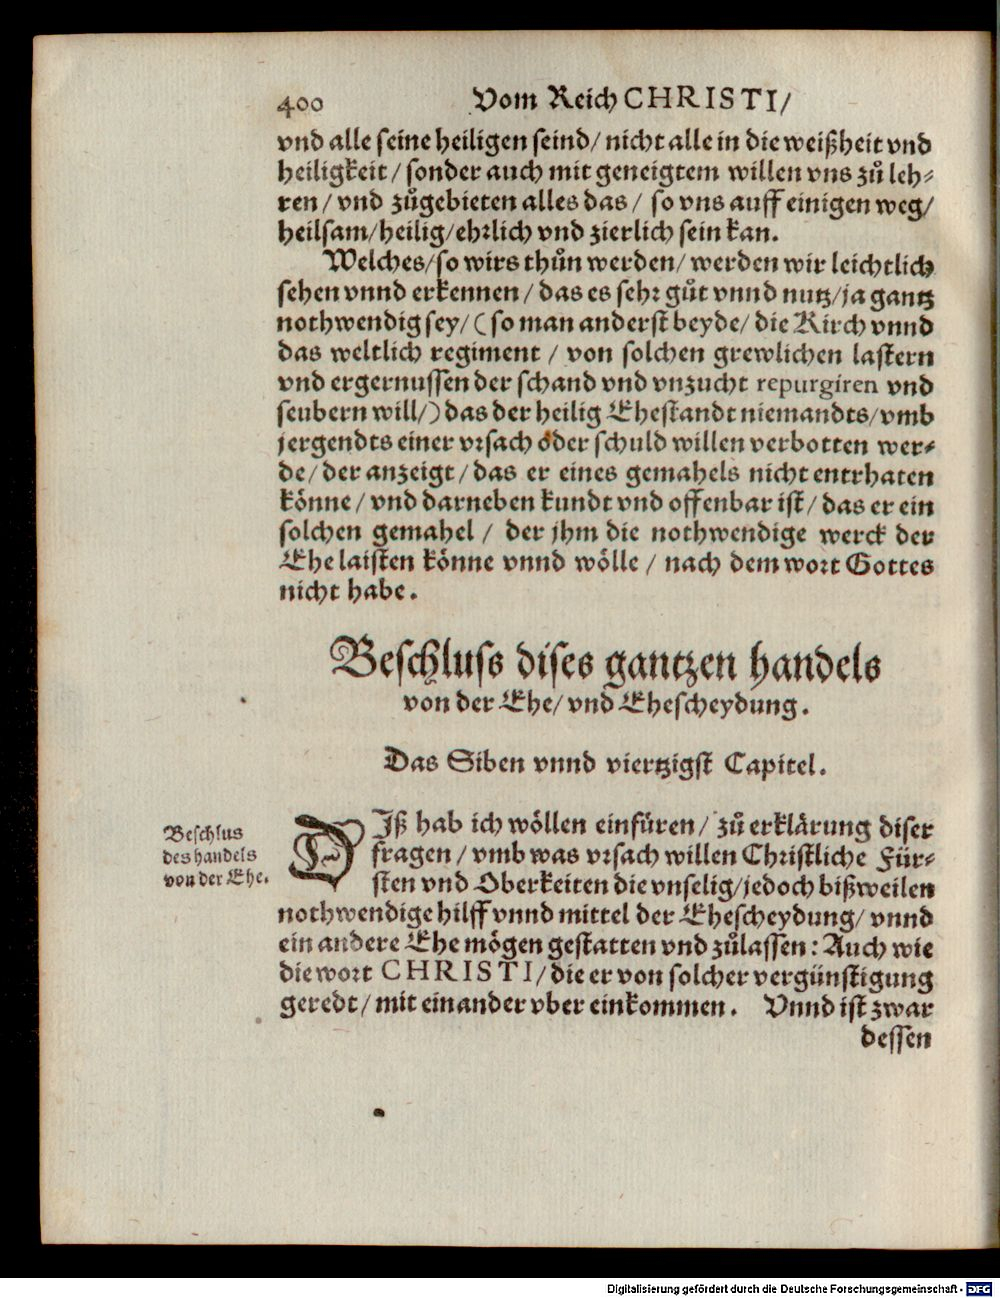 400 Vom Reich CHRISTI/
vnd alle seine heiligen seind/ nicht alle in die weißheit vnd
heiligkeit/ sonder auch mit geneigtem willen vns zů leh⸗
ren/ vnd zůgebieten alles das/ so vns auff einigen weg/
heilsam/heilig/ehrlich vnd zierlich sein kan.
Welches/so wirs thůn werden/ werden wir leichtlich
sehen vnnd erkennen/ das es sehr gůt vnnd nutz/ja gantz
nothwendig sey/ (so man anderst beyde/ die Kirch vnnd
das weltlich regiment/ von solchen grewlichen lastern
vnd ergernussen der schand vnd vnzucht repurgiren vnd
seubern will/) das der heilig Ehestandt niemandts/ vmb
jergendts einer vrsach oder schuld willen verbotten wer⸗
de/ der anzeigt/ das er eines gemahels nicht entrhaten
könne/ vnd darneben kundt vnd offenbar ist/ das er ein
solchen gemahel/ der jhm die nothwendige werck der
Ehe laisten könne vnnd wölle/ nach dem wort Gottes
nicht habe.
Beschluss dises gantzen handels
von der Ehe/ vnd Ehescheydung.
Das Siben vnnd viertzigst Capitel.
Beschlus
des handels
von der Ehe.
DIß hab ich wöllen einfüren/ zů erklärung diser
fragen/ vmb was vrsach willen Christliche Für⸗
sten vnd Oberkeiten die vnselig/jedoch bißweilen
nothwendige hilff vnnd mittel der Ehescheydung/ vnnd
ein andere Ehe mögen gestatten vnd zůlassen: Auch wie
die wort CHRISTI/die er von solcher vergünstigung
geredt/ mit einander vber einkommen. Vnnd ist zwar
dessen
Digitalisierung gefördert durch die Deutsche Forschungsgemeinschaft - DFG